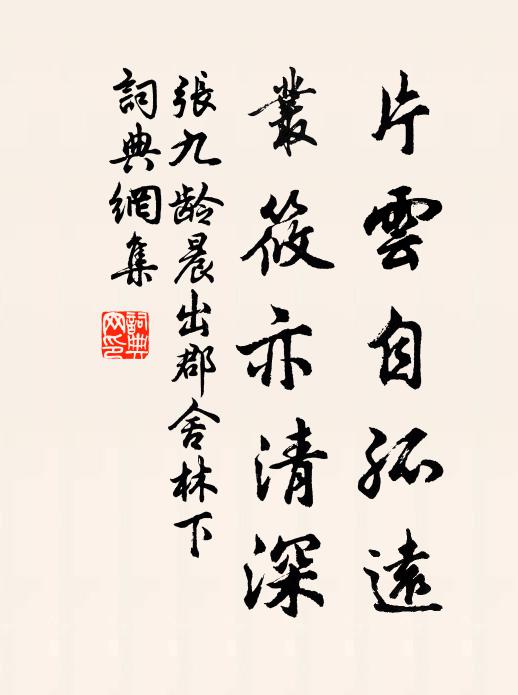 片雲自孤遠
叢筱亦清深
張九龄晨出郡舍林下
詞典網集
詞典
网印